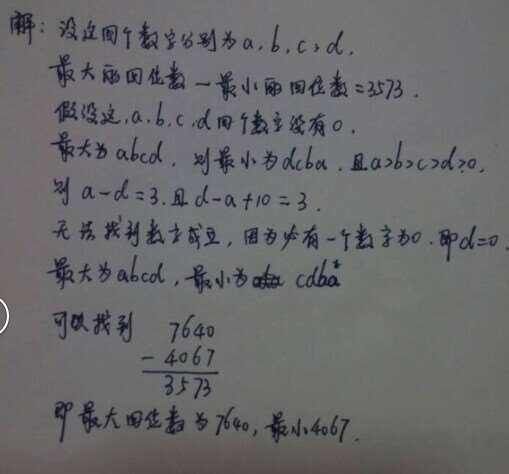 解:设这四个数字分别为a,b,c,d.
最大的四位数-最小的四位数=3573.
假设这.a.b.c.d四个数字没有0.
最大为abcd,则最小为dcba.且a>b>c>d>0.
则 a-d=3.且d-a+10=3.
无法找到数字成立,因为必有一个数字为0.即d=0
最大为abcd,最小为 cdba
可以找到 7640
- 4067
3573
即最大四位数为7640,最小4067.